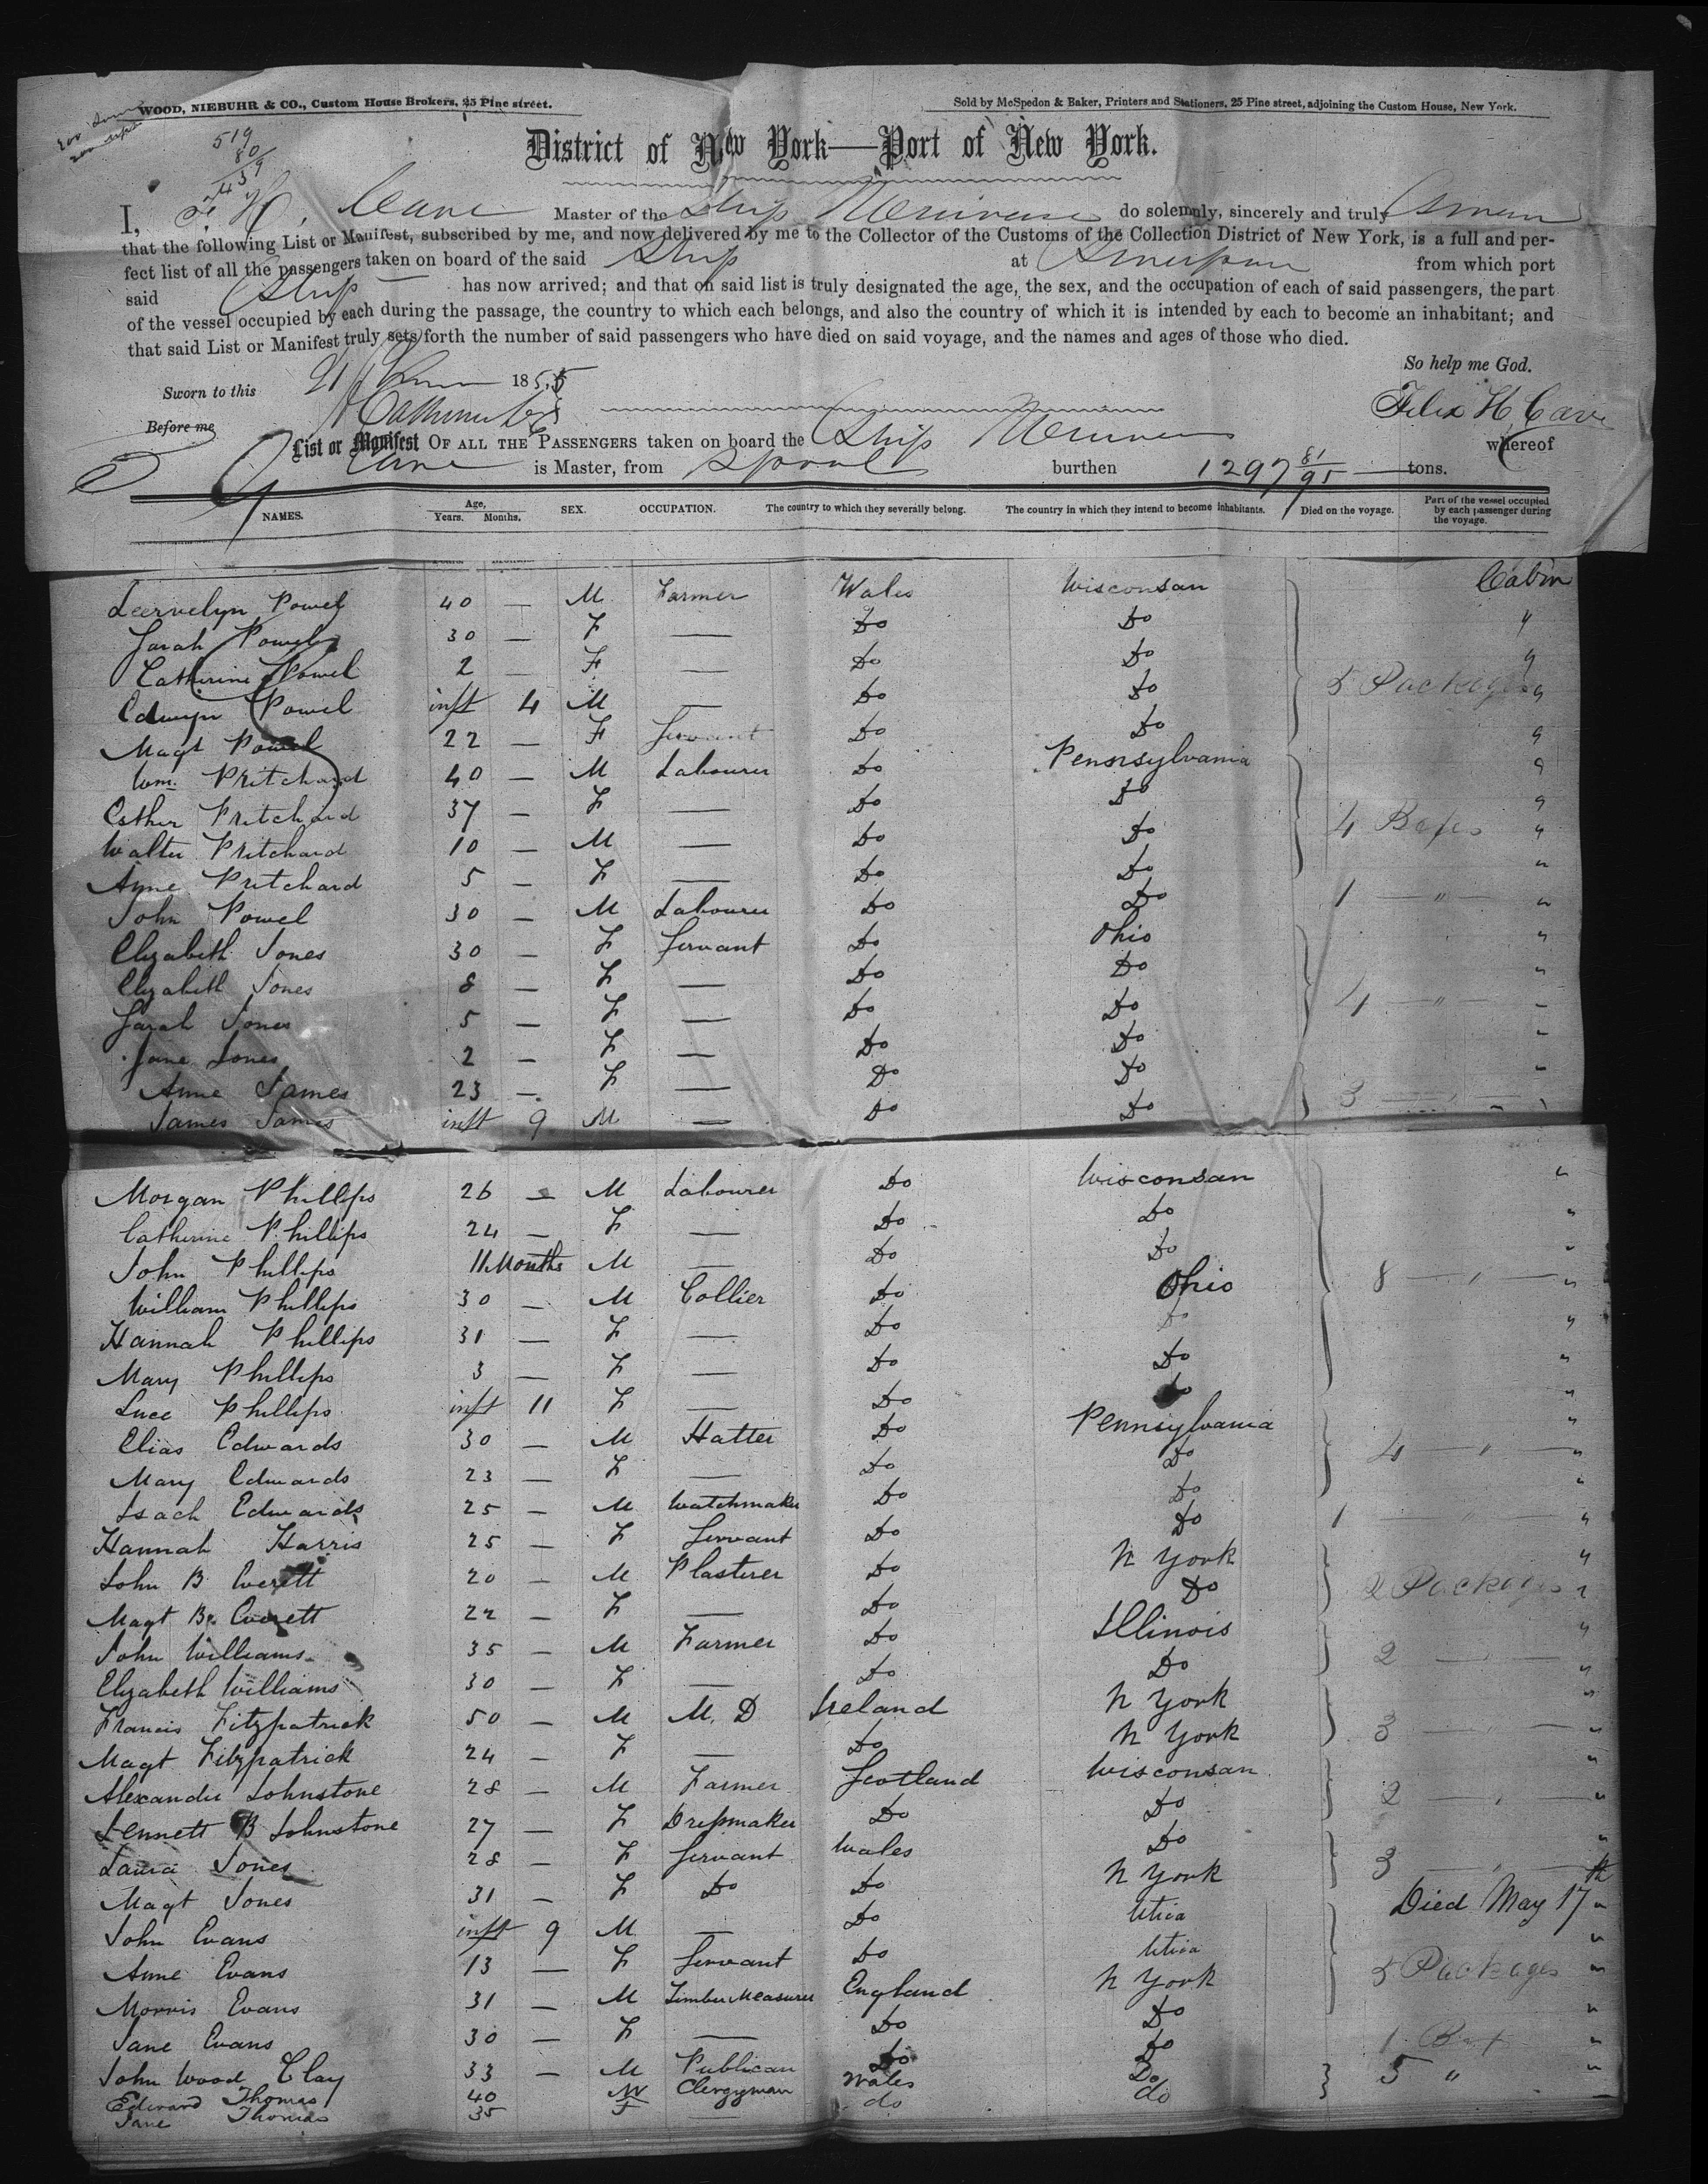 WOOD, NIEBUHR & CO., Custom House Brokers, 25 Pine street.
Sold by McSpedon & Baker, Printers and Stationers, 25 Pine street, adjoining the Custom House, New York.
519
80
439
District of New York—Port of New York.
I, F. H. Cave Master of the Ship do solemnly, sincerely and truly
that the following List or Manifest, subscribed by me, and now delivered by me to the Collector of the Customs of the Collection District of New York, is a full and per-
fect list of all the passengers taken on board of the said Ship at from which port
said Ship has now arrived; and that on said list is truly designated the age, the sex, and the occupation of each of said passengers, the part
of the vessel occupied by each during the passage, the country to which each belongs, and also the country of which it is intended by each to become an inhabitant; and
that said List or Manifest truly sets forth the number of said passengers who have died on said voyage, and the names and ages of those who died.
So help me God.
Sworn to this 1855
Felix H Cave
Before me
List or Manifest OF ALL THE PASSENGERS taken on board the Ship whereof
Cave is Master, from burthen 1297 81/95 tons.
NAMES. Age, Years. Months. SEX. OCCUPATION. The country to which they severally belong. The country in which they intend to become inhabitants. Died on the voyage. Part of the vessel occupied by each passenger during the voyage.
Powel 40 — M Farmer Wales Wisconsan Cabin
Sarah Powel 30 — F — Do Do "
Catherine Powel 2 — F — Do Do "
Edwyn Powel inft 4 M — Do Do 5 Packages "
Magt Powel 22 — F Servant Do Do "
Wm. Pritchard 40 — M Labourer Do Pennsylvania "
Esther Pritchard 37 — F — Do Do "
Walter Pritchard 10 — M — Do Do 4 Boxes "
Anne Pritchard 5 — F — Do Do "
John Powel 30 — M Labourer Do Do 1 — " — "
Elyzabeth Jones 30 — F Servant Do Ohio "
Elyzabeth Jones 8 — F — Do Do "
Sarah Jones 5 — F — Do Do 4 — " — "
Jane Jones 2 — F — Do Do "
Anne James 23 — F — Do Do "
James James inft 9 M — Do Do 3 — " — "
Morgan Phillips 26 — M Labourer Do Wisconsan "
Catherine Phillips 24 — F — Do Do "
John Phillips 11 Months M — Do Do "
William Phillips 30 — M Collier Do Ohio 8 — " — "
Hannah Phillips 31 — F — Do Do "
Mary Phillips 3 — F — Do Do "
Luce Phillips inft 11 F — Do Do "
Elias Edwards 30 — M Hatter Do Pennsylvania "
Mary Edwards 23 — F — Do Do 4 — " — "
Isach Edwards 25 — M Watchmaker Do Do "
Hannah Harris 25 — F Servant Do Do 1 — " — "
John B Everett 20 — M Plasterer Do N York "
Magt B. Everett 22 — F — Do Do 2 Packages "
John Williams 35 — M Farmer Do Illinois "
Elyzabeth Williams 30 — F — Do Do 2 — " — "
Francis Fitzpatrick 50 — M M. D Ireland N York "
Magt Fitzpatrick 24 — F — Do N York 3 — " — "
Alexander Johnstone 28 — M Farmer Scotland Wisconsan "
Jennett B Johnstone 27 — F Dressmaker Do Do 2 — " — "
Jones 28 — F Servant Wales Do "
Magt Jones 31 — F Do Do N York 3 — " — "
John Evans inft 9 M — Do Utica Died May 17th "
Anne Evans 13 — F Servant Do Utica "
Morris Evans 31 — M Timber Measurer England N York 5 Packages "
Jane Evans 30 — F — Do Do "
John Wood Clay 33 — M Publican Do Do 1 Box "
Edward Thomas 40 M Clergyman Wales Do 5 " "
Jane Thomas 35 F — do do